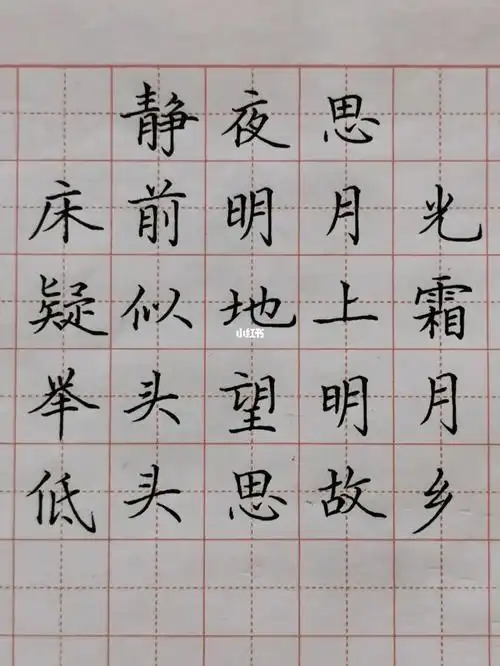 静夜思
床前明月光
疑似地上霜
小红书
举头望明月
低头思故乡